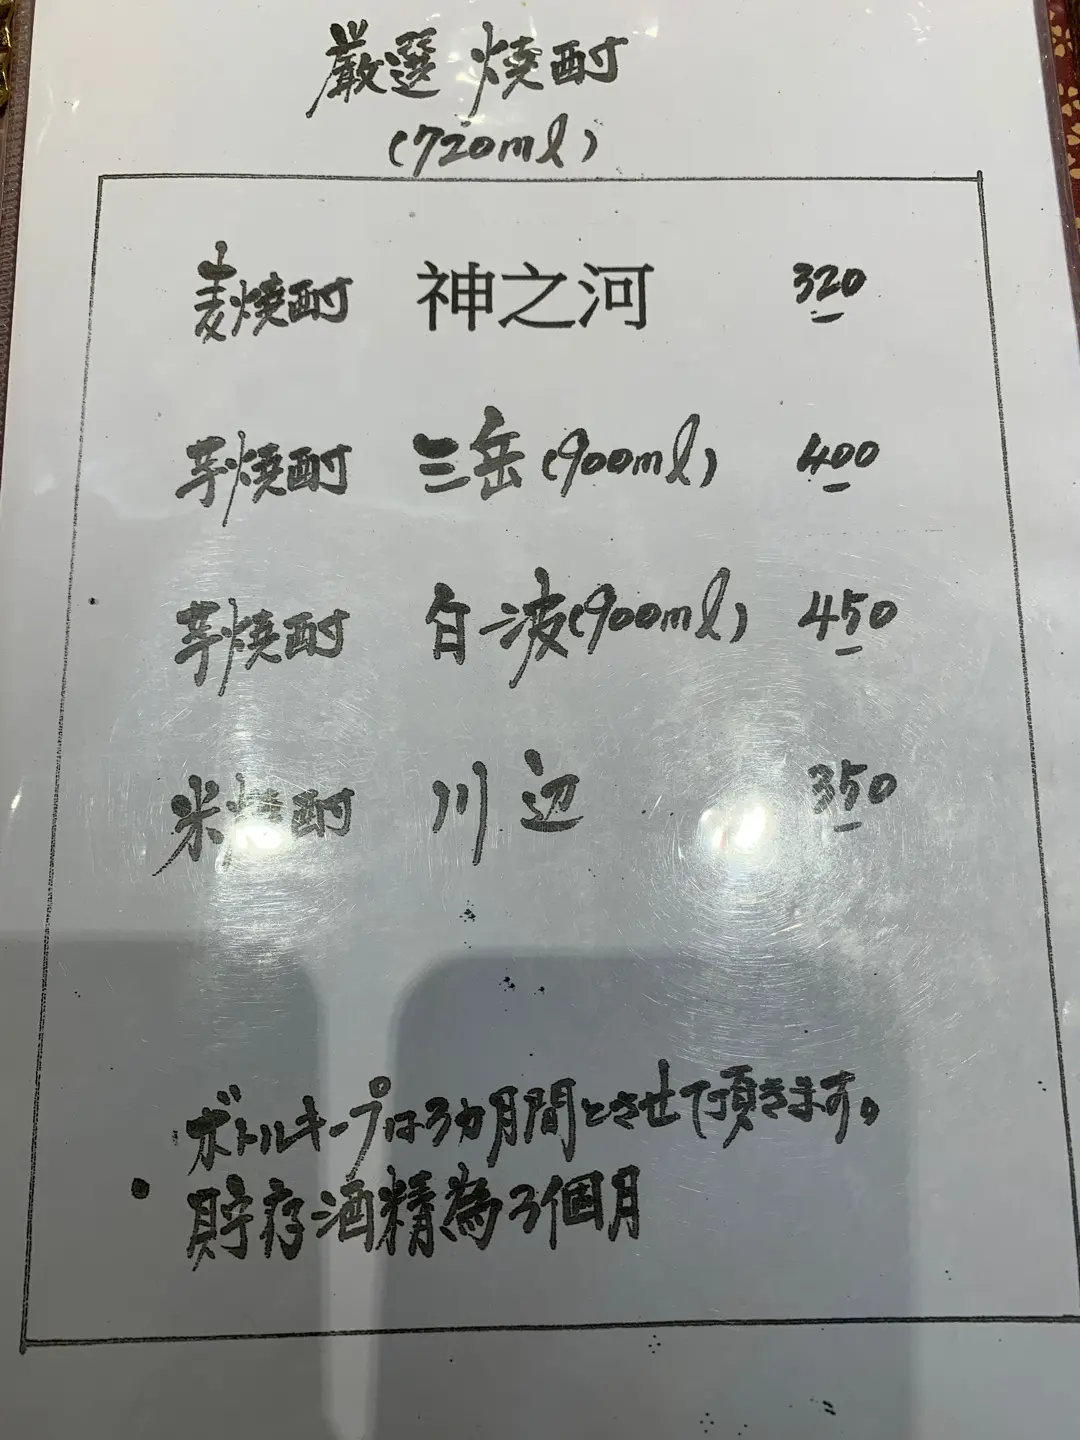 厳選 焼酎
(720ml)
麦焼酎 神之河 320
芋焼酎 三岳(900ml) 400
芋焼酎 白波(900ml) 450
米焼酎 川辺 350
ボトルキープは3カ月間とさせて頂きます。
・貯存酒精為3個月